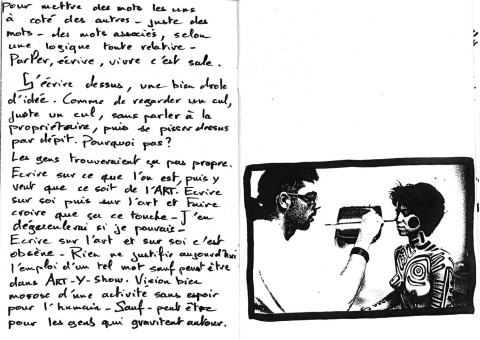 Pour mettre des mots les uns
à coté des autres - juste des
mots - des mots associés, selon
une logique toute relative -
Parler, écrire, vivre c'est sale.
S'écrire dessus, une bien drole
d'idée. Comme de regarder un cul,
juste un cul, sans parler à la
propriétaire, puis se pisser dessus
par dépit. Pourquoi pas?
Les gens trouveraient ça pas propre.
Ecrire sur ce que l'on est, puis y
veut que ce soit de l'ART. Ecrire
sur soi puis sur l'art et faire
croire que ça ce touche - J'en
dégueulerai si je pouvais -
Ecrire sur l'art et sur soi c'est
obsène - Rien ne justifie aujourd'hui
l'emploi d'un tel mot sauf peut être
dans ART-Y-Show. Vision bien
morose d'une activité sans espoir
pour l'humain - Sauf - peut être
pour les gens qui gravitent autour.